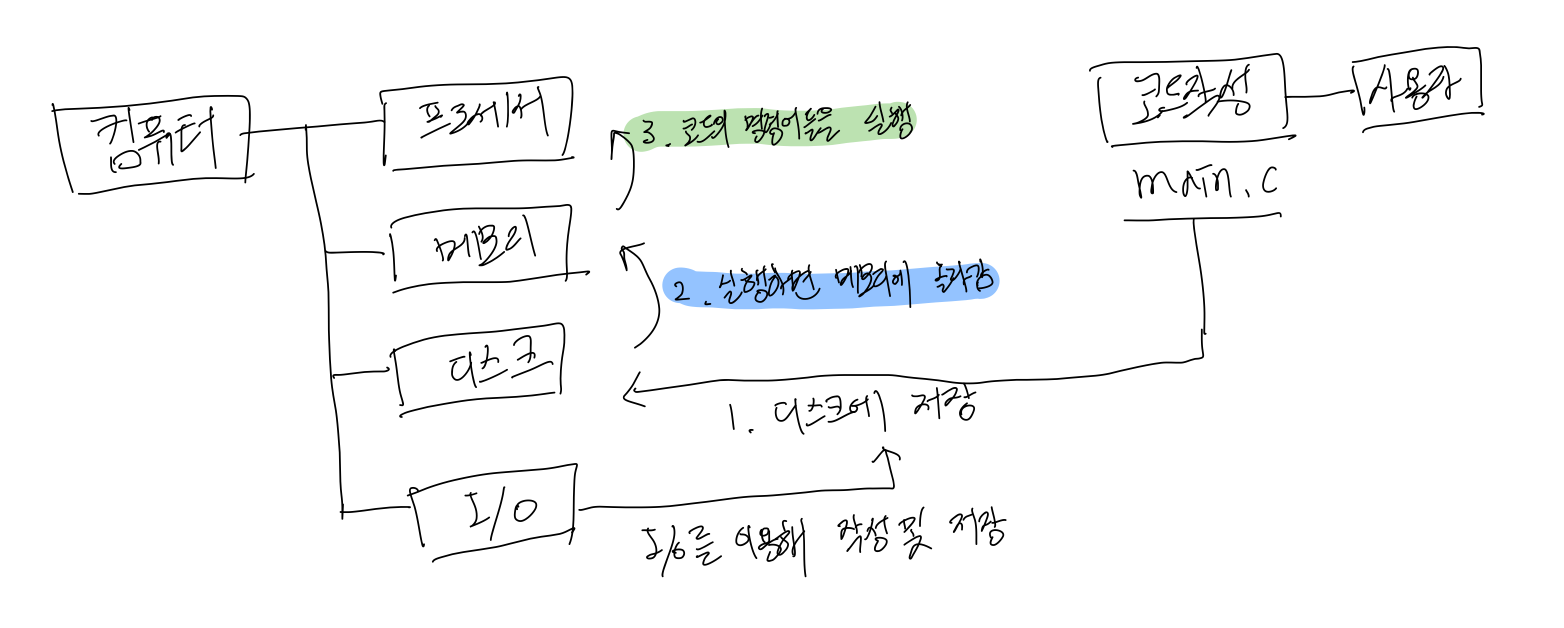 컴퓨터
프로세서
메모리
디스크
I/O
3. 코드의 명령어들을 실행
2. 실행하면 메모리에 올라감
1. 디스크에 저장
I/O를 이용해 작성 및 저장
코드작성
main.c
사용자